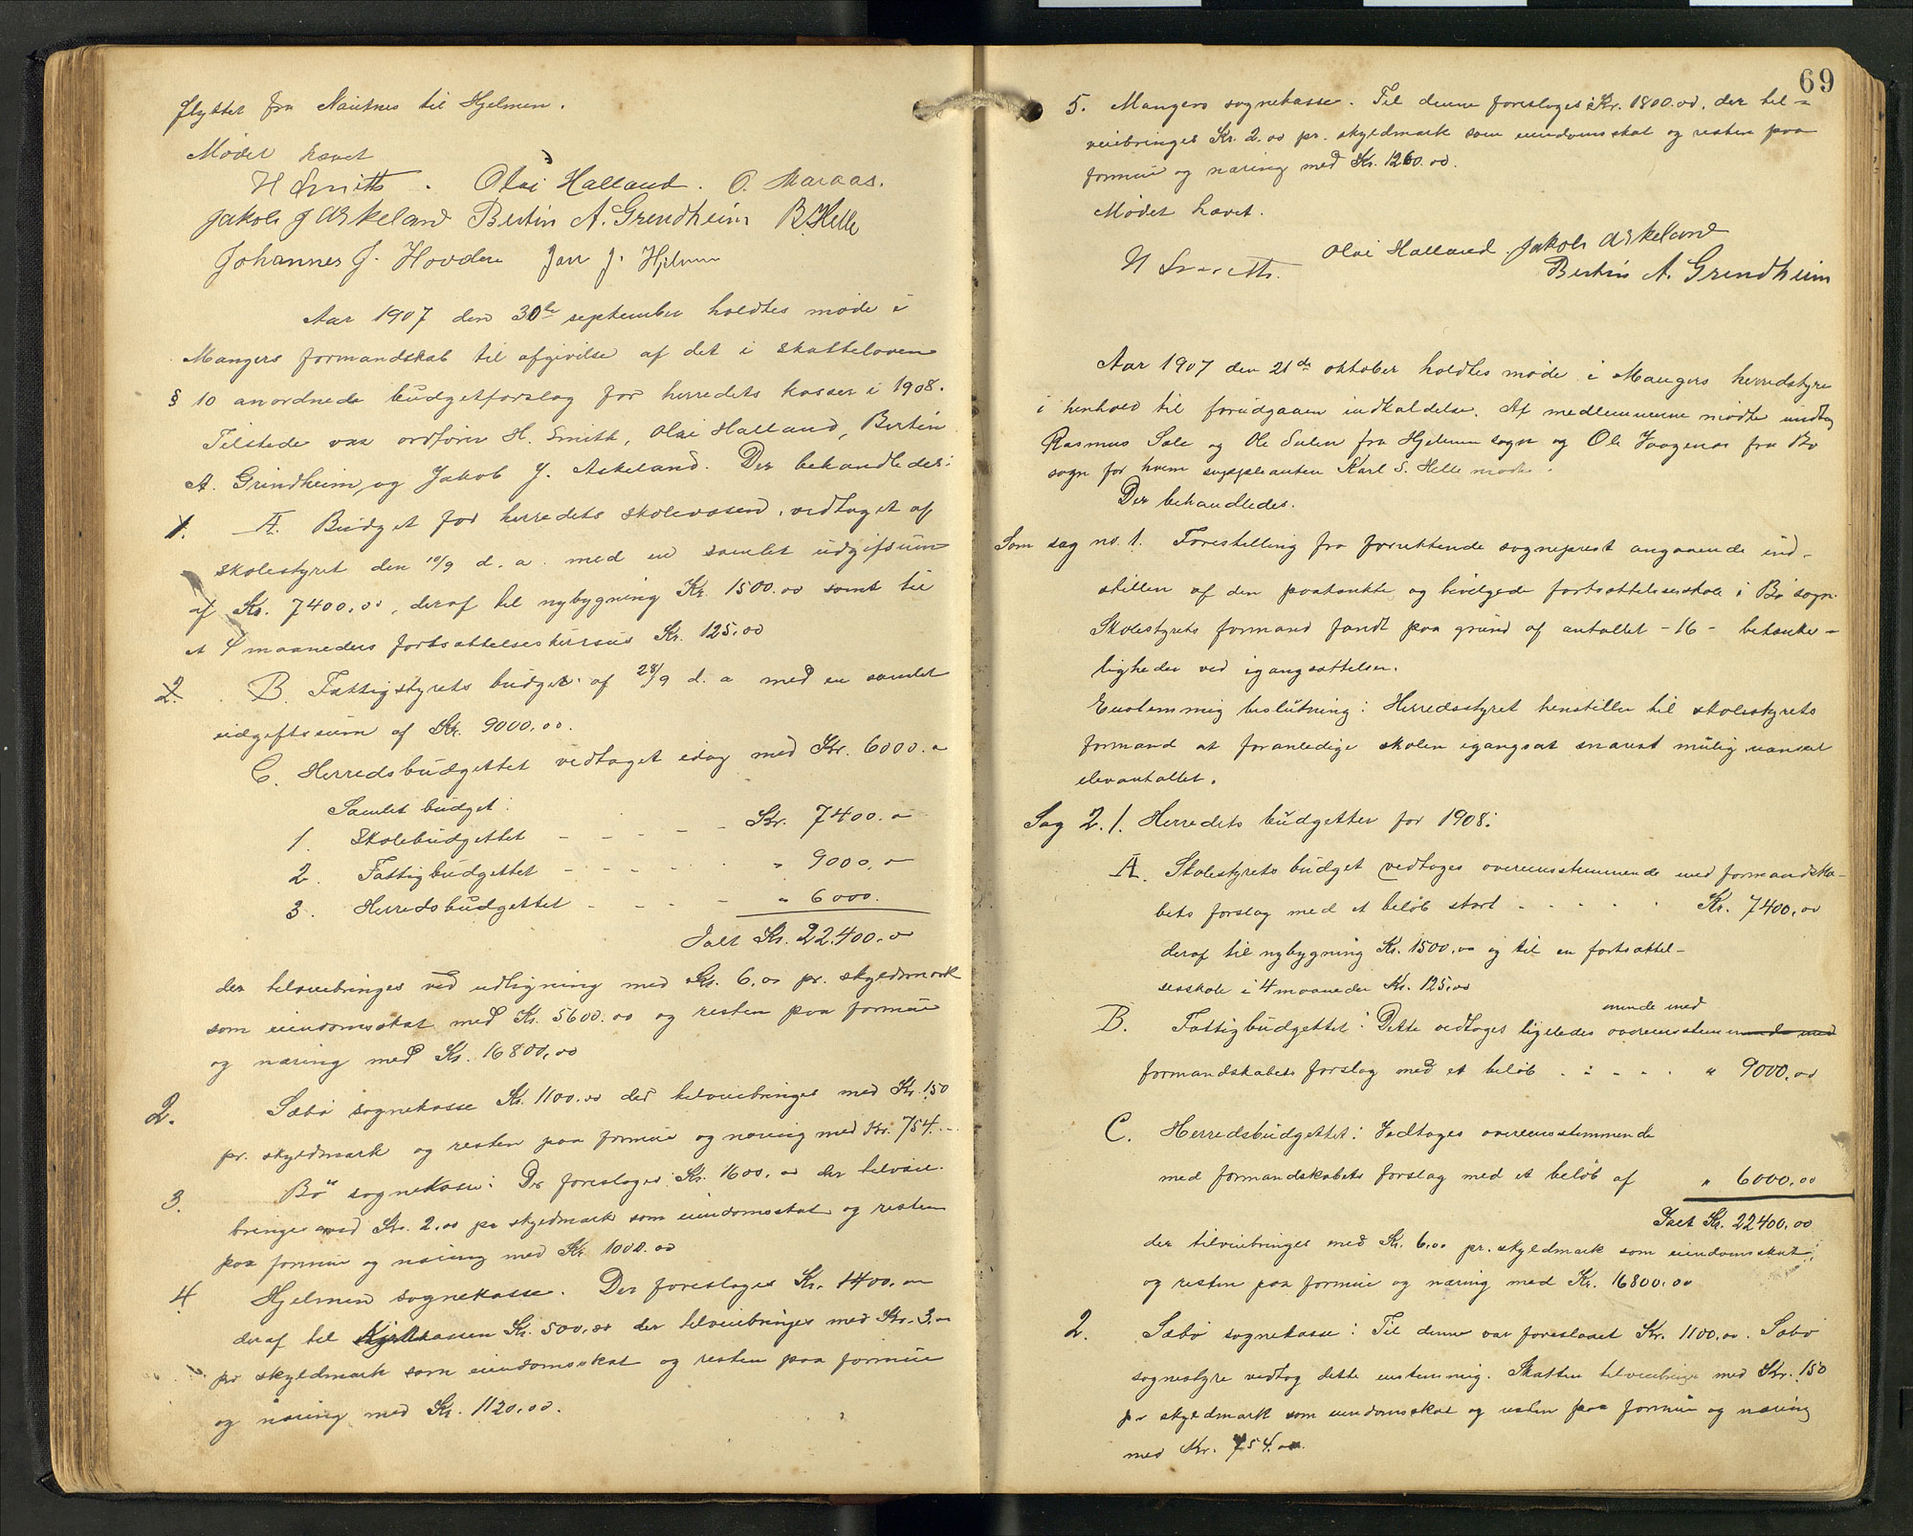 flyttet fra Nautnes til Hjelmen.
Mødet hævet
H Smith. Olai Halland. O. Maraas.
Jakob J Askeland Bertin A. Grendheim B. Helle
Johannes J. Hovden Jan J. Hjelmen
Aar 1907 den 30te september holdtes møde i
Mangers formandskab til afgivelse af det i skatteloven
§ 10 anordnede budgetforslag for herredets kasser i 1908.
Tilstede var ordfører H. Smith, Olai Halland, Bertin
A. Grindheim og Jakob J. Askeland. Der behandledes:
1. A. Budget for herredets skolevæsen, vedtaget af
skolestyret den 10/9 d. a. med en samlet udgifsum
af Kr. 7400,00, deraf til nybygning Kr. 1500.00 samt til
et 4 maaneders fortsættelseskursus Kr. 125,00
2. B. Fattigstyrets budget af 28/9 d. a med en samlet
udgiftssum af Kr. 9000,00.
C. Herredsbudgettet vedtaget idag med Kr. 6000.00
Samlet budget:
1. Skolebudgettet - - - - - Kr. 7400.00
2. Fattigbudgettet - - - - - " 9000,00
3. Herredsbudgettet - - - - " 6000.
Ialt Kr. 22.400.00
der tilveiebringes ved udligning med Kr. 6,00 pr. skyldmark
som eiendomsskat med Kr. 5600.00 og resten paa formue
og næring med Kr. 16800,00
2. Sæbø sognekasse Kr. 1100.00 der tilveiebringes med Kr. 1.50
pr. skyldmark og resten paa formue og næring med Kr. 754.-
3. Bø sognekasse: Der foreslages Kr. 1600,00 der tilveie-
bringes med Kr. 2.00 pr skyldmark som eiendomsskat og resten
paa formue og næring med Kr 1000.00
4 Hjelmen sognekasse. Der foreslages Kr. 1400,00
deraf til Kirkekassen Kr. 500,00 der tilveiebringes med Kr. 3,00
pr skyldmark som eiendomsskat og resten paa formue
og næring med Kr. 1120,00.
69
5. Mangers sognekasse. Til denne foreslages Kr. 1800.00, der til-
veiebringes Kr. 2.00 pr. skyldmark som eiendomsskat og resten paa
formue og næring med Kr. 1260.00.
Mødet hævet.
H Smith. Olai Halland Jakob Askeland
Bertin A. Grendheim
Aar 1907 den 21de oktober holdtes møde i Mangers herredstyre
i henhold til forudgaaen indkaldelse. Af medlemmerne mødte undtag
Rasmus Sale og Ole Sulen fra Hjelmen sogn og Ole Vaagenes fra Bø
sogn for hvem suppleanten Karl S. Helle mødte.
Der behandledes.
Som sag no. 1. Forestilling fra forrettende sogneprest angaaende ind-
stillen af den paatænkte og bevilgede fortsættelsesskole i Bø sogn.
Skolestyrets formand fandt paa grund af antallet - 16 - betænke-
ligheder ved igangsættelsen.
Enstemmig beslutning: Herredsstyret henstiller til skolestyrets
formand at foranledige skolen igangsat snarest mulig uanset
elevantallet.
Sag 2. 1. Herredets budgetter for 1908:
A. Skolestyrets budget vedtages overensstemmende med formandska-
bets forslag med et beløb stort - - - - - Kr. 7400,00
deraf til nybygning Kr. 1500,00 og til en fortsættel-
sesskole i 4 maaneder Kr. 125,00
mende med
B. Fattigbudgettet: Dette vedtages ligeledes overensstemmende med
formandskabets forslag med et beløb - - - - - " 9000,00
C. Herredsbudgettet: Vedtages overensstemmende
med formandskabets forslag med et beløb af " 6000,00
Ialt Kr. 22400,00
der tilveiebringes med Kr. 6,00 pr. skyldmark som eiendomsskat
og resten paa formue og næring med Kr. 16800.00
2. Sæbø sognekasse: Til denne var foreslaaet Kr. 1100,00. Sæbø
sognestyre vedtog dette enstemmig. Skatten tilveiebringes med Kr. 1.50
pr skyldmark som eiendomsskat og resten paa formue og næring
med Kr. 754.00.